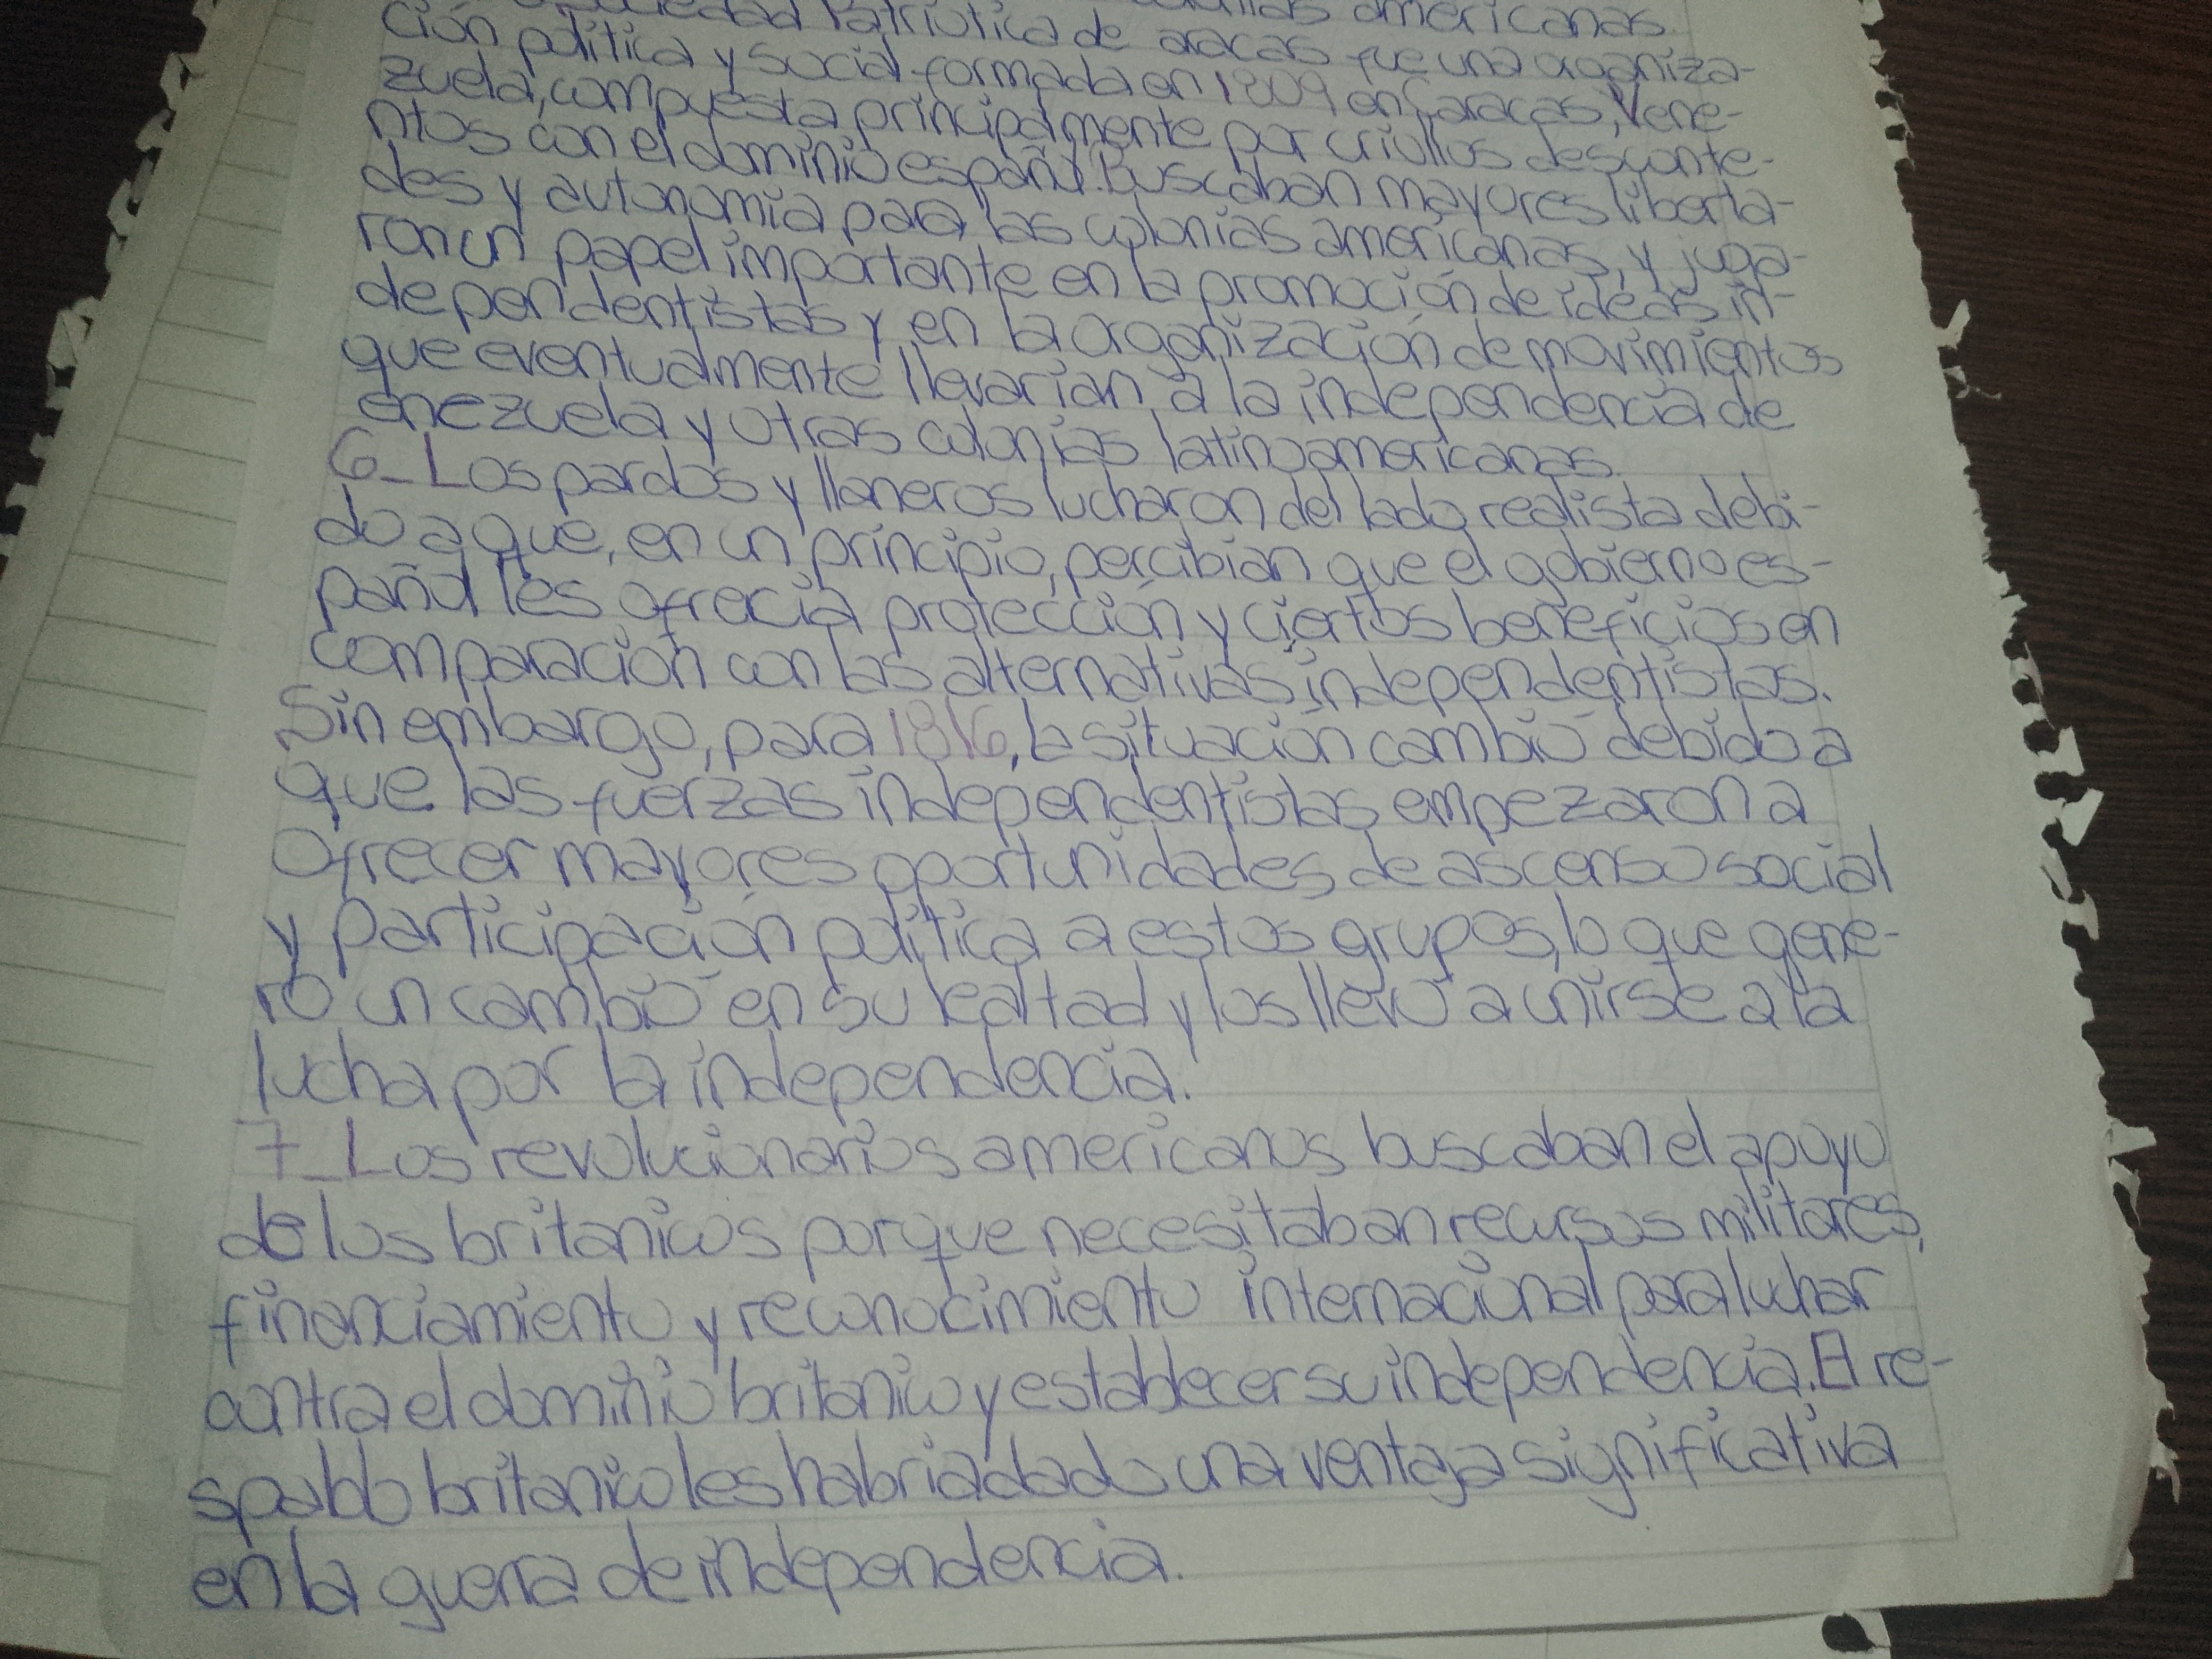 americanas.
ciedad Patriótica de aracas fue una organiza-
ción política y social formada en 1809 en Caracas, Vene-
zuela, compuesta principalmente por criollos desconte-
ntos con el dominio español. Buscaban mayores liberta-
des y autonomía para las colonias americanas, y juga-
ron un papel importante en la promoción de ideas in-
dependentistas y en la organización de movimientos
que eventualmente llevarían a la independencia de
enezuela y otras colonias latinoamericanas.
6_Los pardos y llaneros lucharon del lado realista debi-
do a que, en un principio, percibían que el gobierno es-
pañol les ofrecía protección y ciertos beneficios en
comparación con las alternativas independentistas.
Sin embargo, para 1816, la situación cambió debido a
que las fuerzas independentistas empezaron a
ofrecer mayores oportunidades de ascenso social
y participación política a estos grupos, lo que gene-
ró un cambió en su lealtad y los llevó a unirse a la
lucha por la independencia.
7_Los revolucionarios americanos buscaban el apoyo
de los britanicos porque necesitaban recursos militares,
financiamiento y reconocimiento internacional para luchar
contra el dominio britanico y establecer su independencia. El re-
spaldo britanico les habria dado una ventaja significativa
en la guerra de independencia.